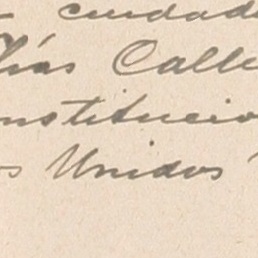 ciudad
lías Calle
onstitucio
os Unidos